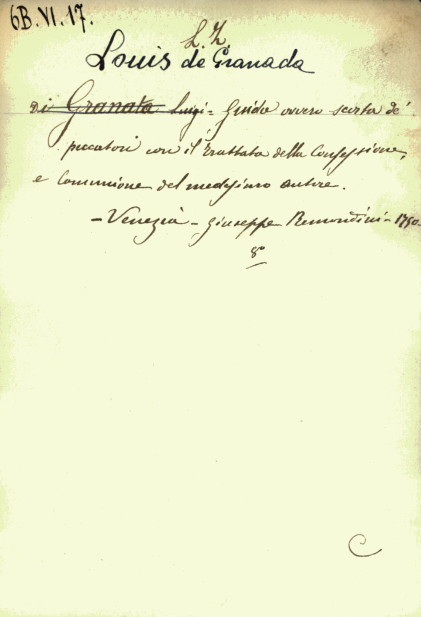 6B.VI.17.
L. Z
Louis de Granada
di Granata Luigi - Guida ovvero scorta de'
peccatori con il Trattato della Confessione,
e Comunione del medesimo autore.
- Venezia - Giuseppe Remondini - 1750 -
8º
C